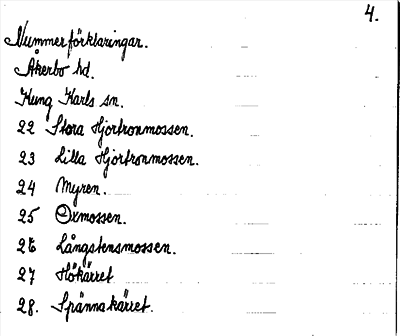 4.
Nummerförklaringar.
Åkerbo hd.
Kung Karls sn.
22 Stora Hjortronmossen.
23 Lilla Hjortronmossen.
24 Myren.
25 Oxmossen.
26 Långstensmossen.
27 Hökärret
28. Spännakärret.